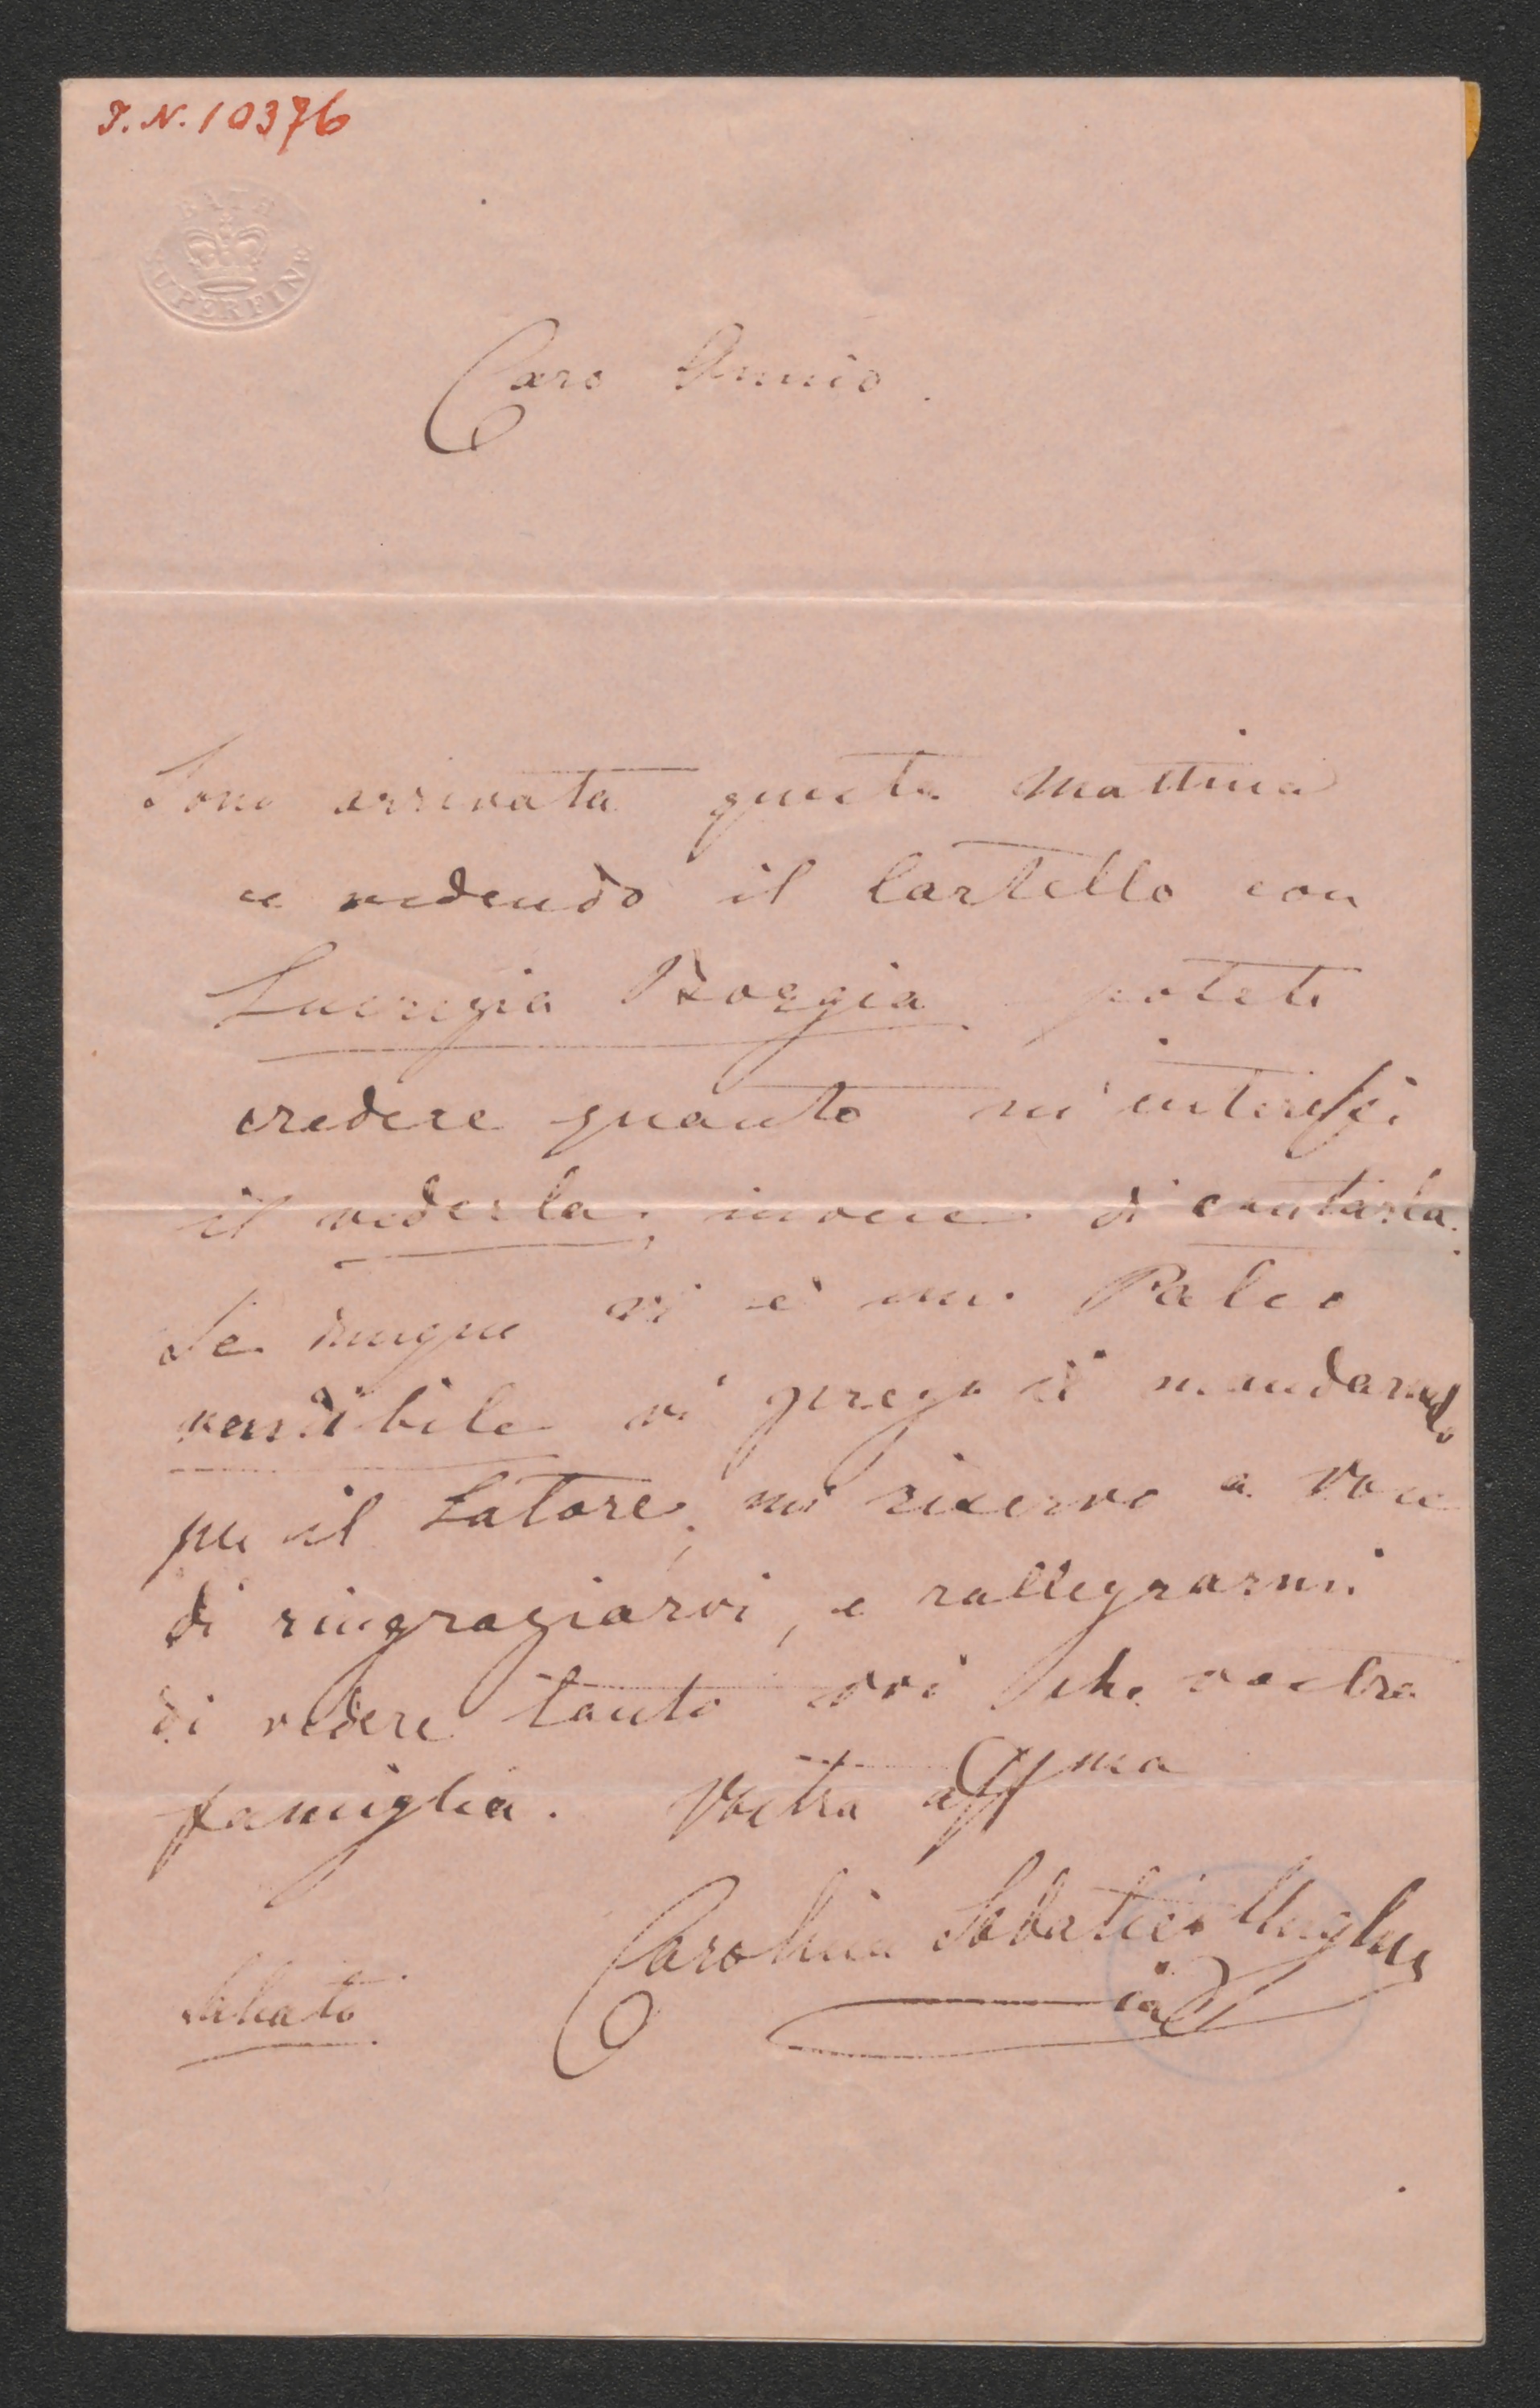 I.N. 10376
BATH
SUPERFINE
Caro Amico.
Sono arrivata questa mattina
e vedendo il Cartello con
Lucrezia Borgia potete
credere quanto m'interessi
il vederla, invece di cantarla.
Se dunque vi è un Palco
vendibile vi prego di mandarmelo
per il Latore; mi riservo a voce
di ringraziarvi, e rallegrarmi
di vedere tanto voi che vostra
famiglia. Vostra affma
Carolina Sabatier Ungher
Sabato